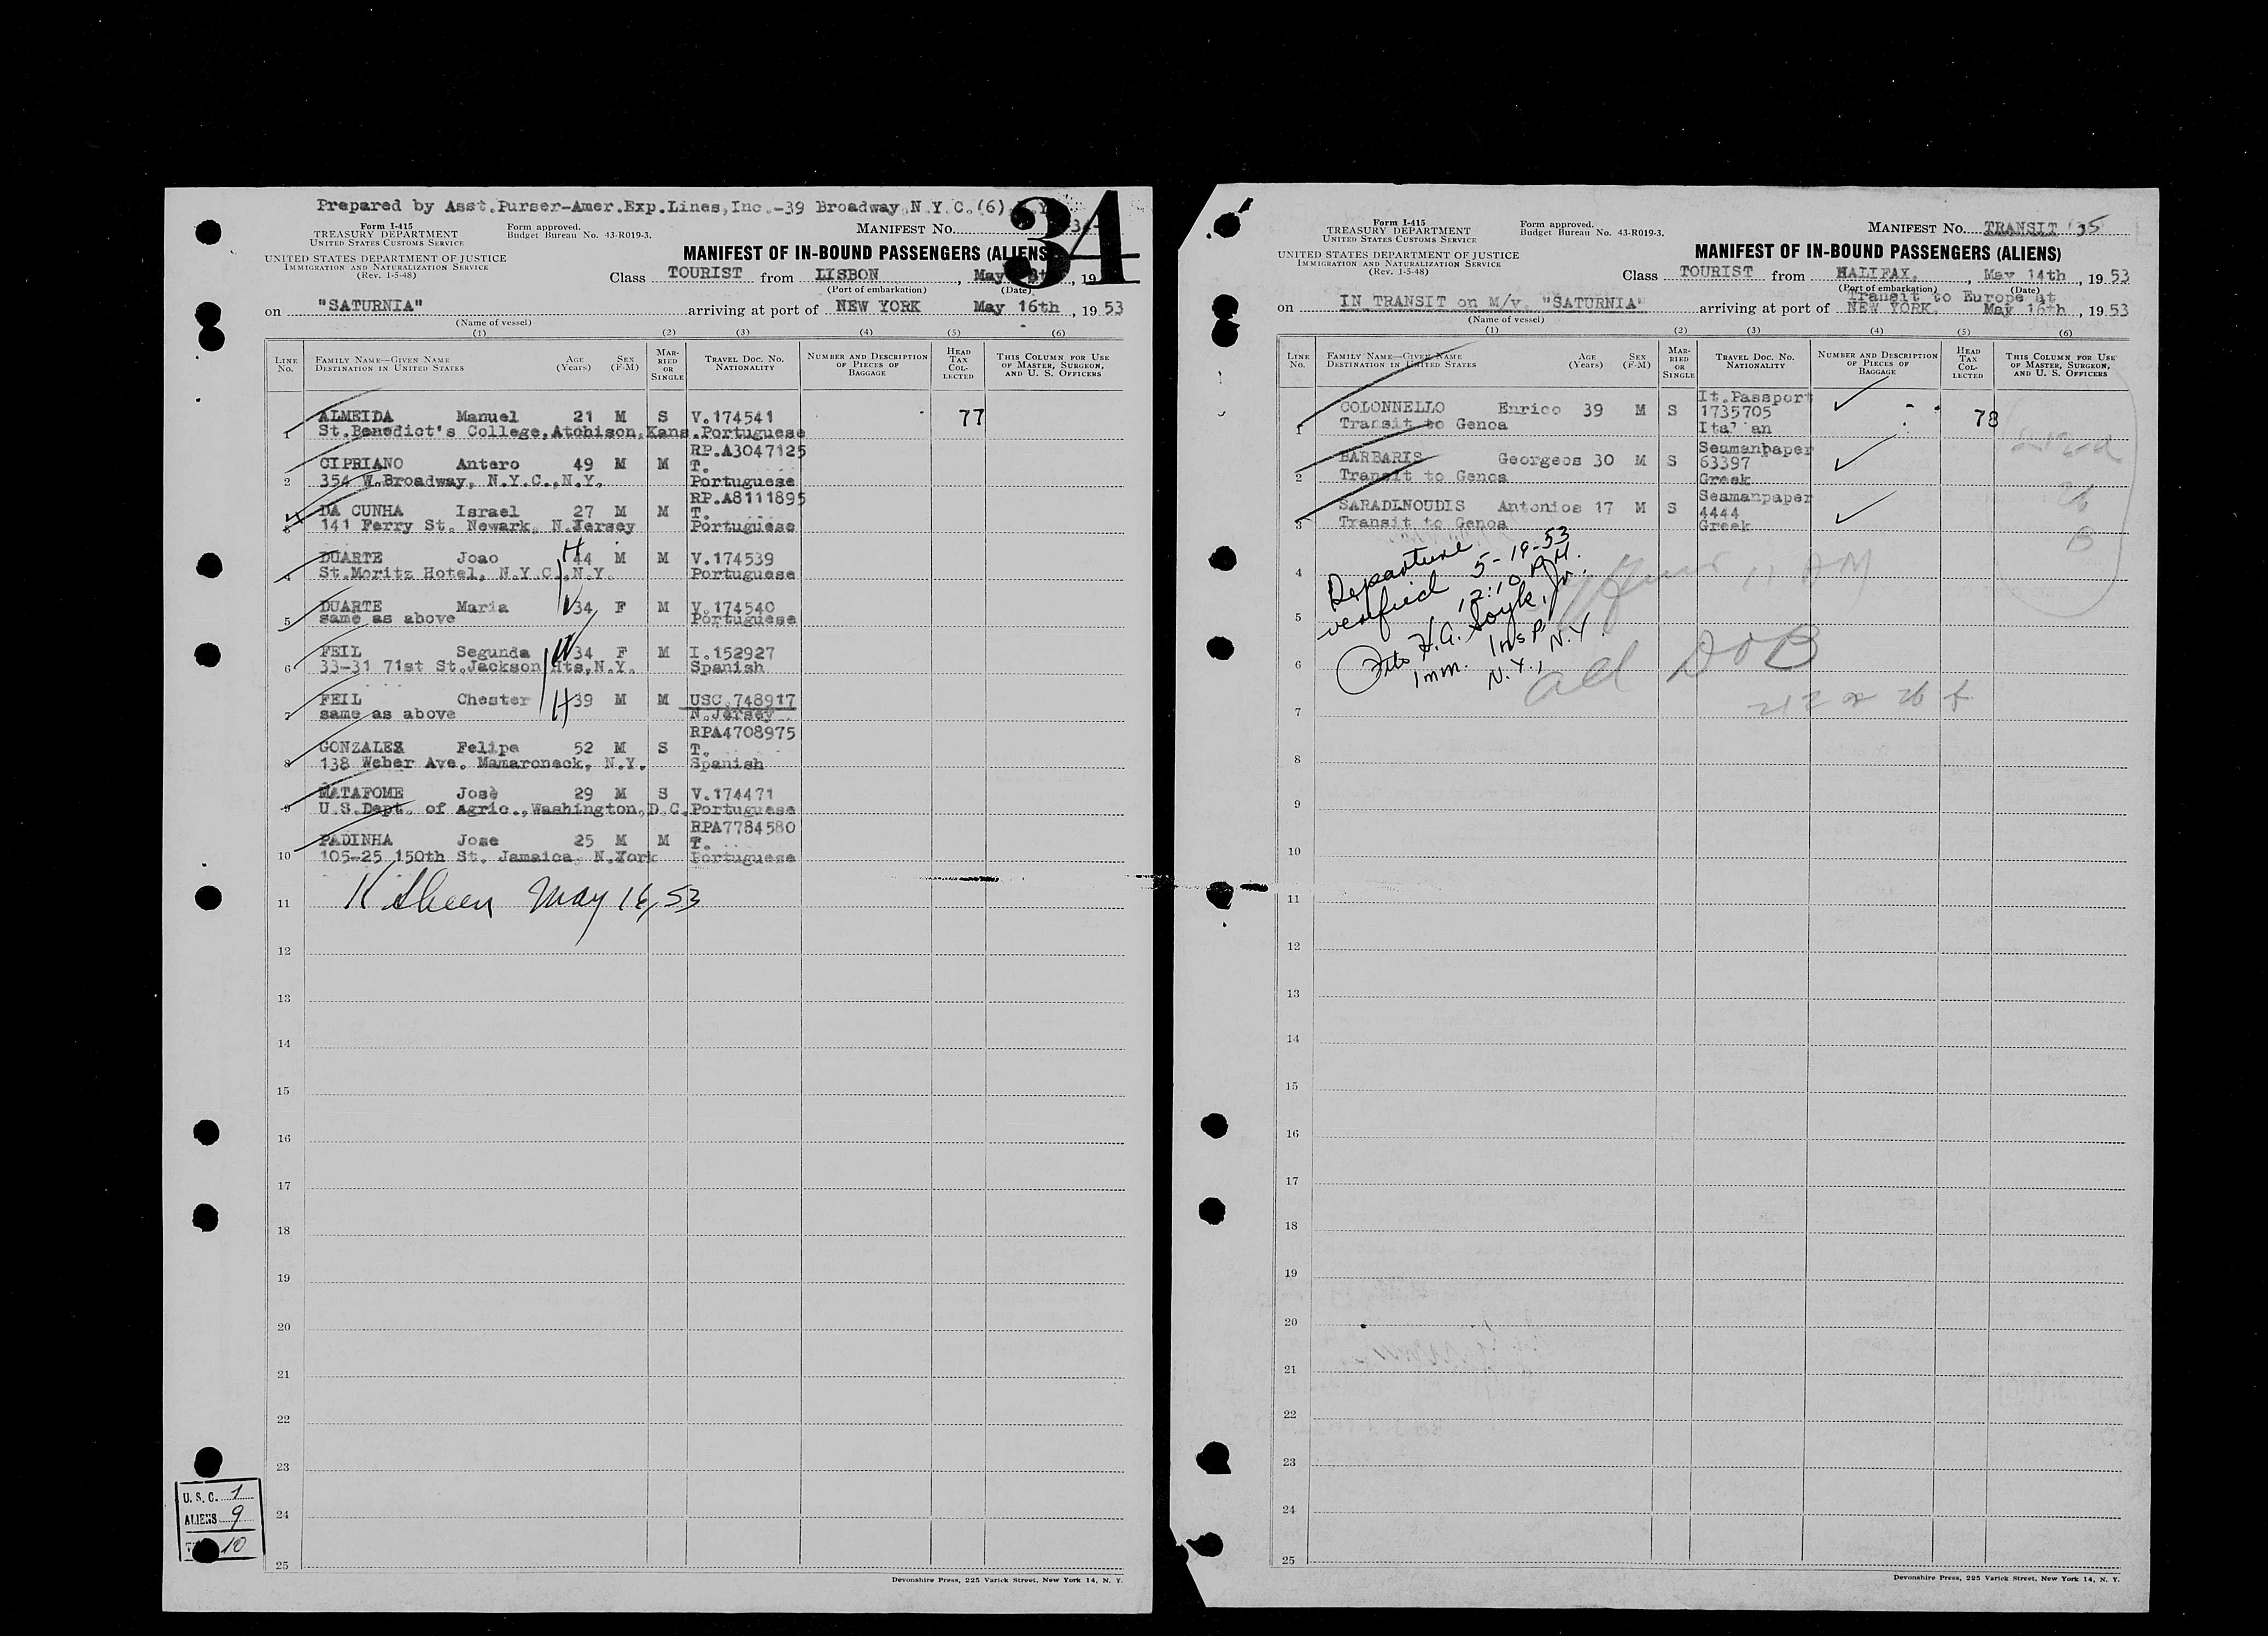 Prepared by Asst.Purser-Amer.Exp.Lines,Inc.-39 Broadway,N.Y.C.(6)
34
Form I-415
TREASURY DEPARTMENT
UNITED STATES CUSTOMS SERVICE
Form approved.
Budget Bureau No. 43-R019-3.
MANIFEST No.
UNITED STATES DEPARTMENT OF JUSTICE
IMMIGRATION AND NATURALIZATION SERVICE
(Rev. 1-5-48)
MANIFEST OF IN-BOUND PASSENGERS (ALIENS)
Class TOURIST from LISBON, May
(Port of embarkation) (Date)
on "SATURNIA" arriving at port of NEW YORK May 16th, 1953
(Name of vessel)
(1) (2) (3) (4) (5) (6)
LINE No. FAMILY NAME—GIVEN NAME DESTINATION IN UNITED STATES AGE (Years) SEX (F-M) MARRIED OR SINGLE TRAVEL DOC. NO. NATIONALITY NUMBER AND DESCRIPTION OF PIECES OF BAGGAGE HEAD TAX COLLECTED THIS COLUMN FOR USE OF MASTER, SURGEON, AND U. S. OFFICERS
1 ALMEIDA Manuel 21 M S V.174541 77
St.Benedict's College,Atchison,Kans.Portuguese
RP.A3047125
CIPRIANO Antero 49 M M T.
2 354 W.Broadway, N.Y.C.,N.Y. Portuguese
RP.A8111895
DA CUNHA Israel 27 M M T.
3 141 Ferry St. Newark, N.Jersey Portuguese
DUARTE Joao 44 M M V.174539
4 St.Moritz Hotel, N.Y.C.,N.Y. Portuguese
DUARTE Maria 34 F M V.174540
5 same as above Portuguese
FEIL Segunda 34 F M I.152927
6 33-31 71st St.Jackson Hts,N.Y. Spanish
FEIL Chester 39 M M USC.748917
7 same as above N.Jersey
RPA4708975
GONZALES Felipe 52 M S T.
8 138 Weber Ave. Mamaroneck, N.Y. Spanish
MATAFOME José 29 M S V.174471
9 U.S.Dept. of Agric.,Washington,D.C.Portuguese
RPA7784580
PADINHA Jose 25 M M T.
10 105-25 150th St. Jamaica, N.York Portuguese
11 May 16, 53
12
13
14
15
16
17
18
19
20
21
22
23
24
25
U. S. C. 1
ALIENS 9
10
Devonshire Press, 225 Varick Street, New York 14, N. Y.
Form I-415
TREASURY DEPARTMENT
UNITED STATES CUSTOMS SERVICE
Form approved.
Budget Bureau No. 43-R019-3.
MANIFEST No. TRANSIT 35
UNITED STATES DEPARTMENT OF JUSTICE
IMMIGRATION AND NATURALIZATION SERVICE
(Rev. 1-5-48)
MANIFEST OF IN-BOUND PASSENGERS (ALIENS)
Class TOURIST from HALIFAX, May 14th, 1953
(Port of embarkation) (Date)
Transit to Europe at
on IN TRANSIT on M/v. "SATURNIA" arriving at port of NEW YORK. May 16th, 1953
(Name of vessel)
(1) (2) (3) (4) (5) (6)
LINE No. FAMILY NAME—GIVEN NAME DESTINATION IN UNITED STATES AGE (Years) SEX (F-M) MARRIED OR SINGLE TRAVEL DOC. NO. NATIONALITY NUMBER AND DESCRIPTION OF PIECES OF BAGGAGE HEAD TAX COLLECTED THIS COLUMN FOR USE OF MASTER, SURGEON, AND U. S. OFFICERS
It.Passport
COLONNELLO Enrico 39 M S 1735705 78
1 Transit to Genoa
Seamanpaper
BARBARIS Georgeos 30 M S 63397
2 Transit to Genoa Greek
Seamanpaper
SARADINOUDIS Antonios 17 M S 4444
3 Transit to Genoa Greek
Departure
verified 5-19-53
12:10 P.M.
Imm. Insp.
N.Y., N.Y.
4
5
6
7
8
9
10
11
12
13
14
15
16
17
18
19
20
21
22
23
24
25
Devonshire Press, 225 Varick Street, New York 14, N. Y.